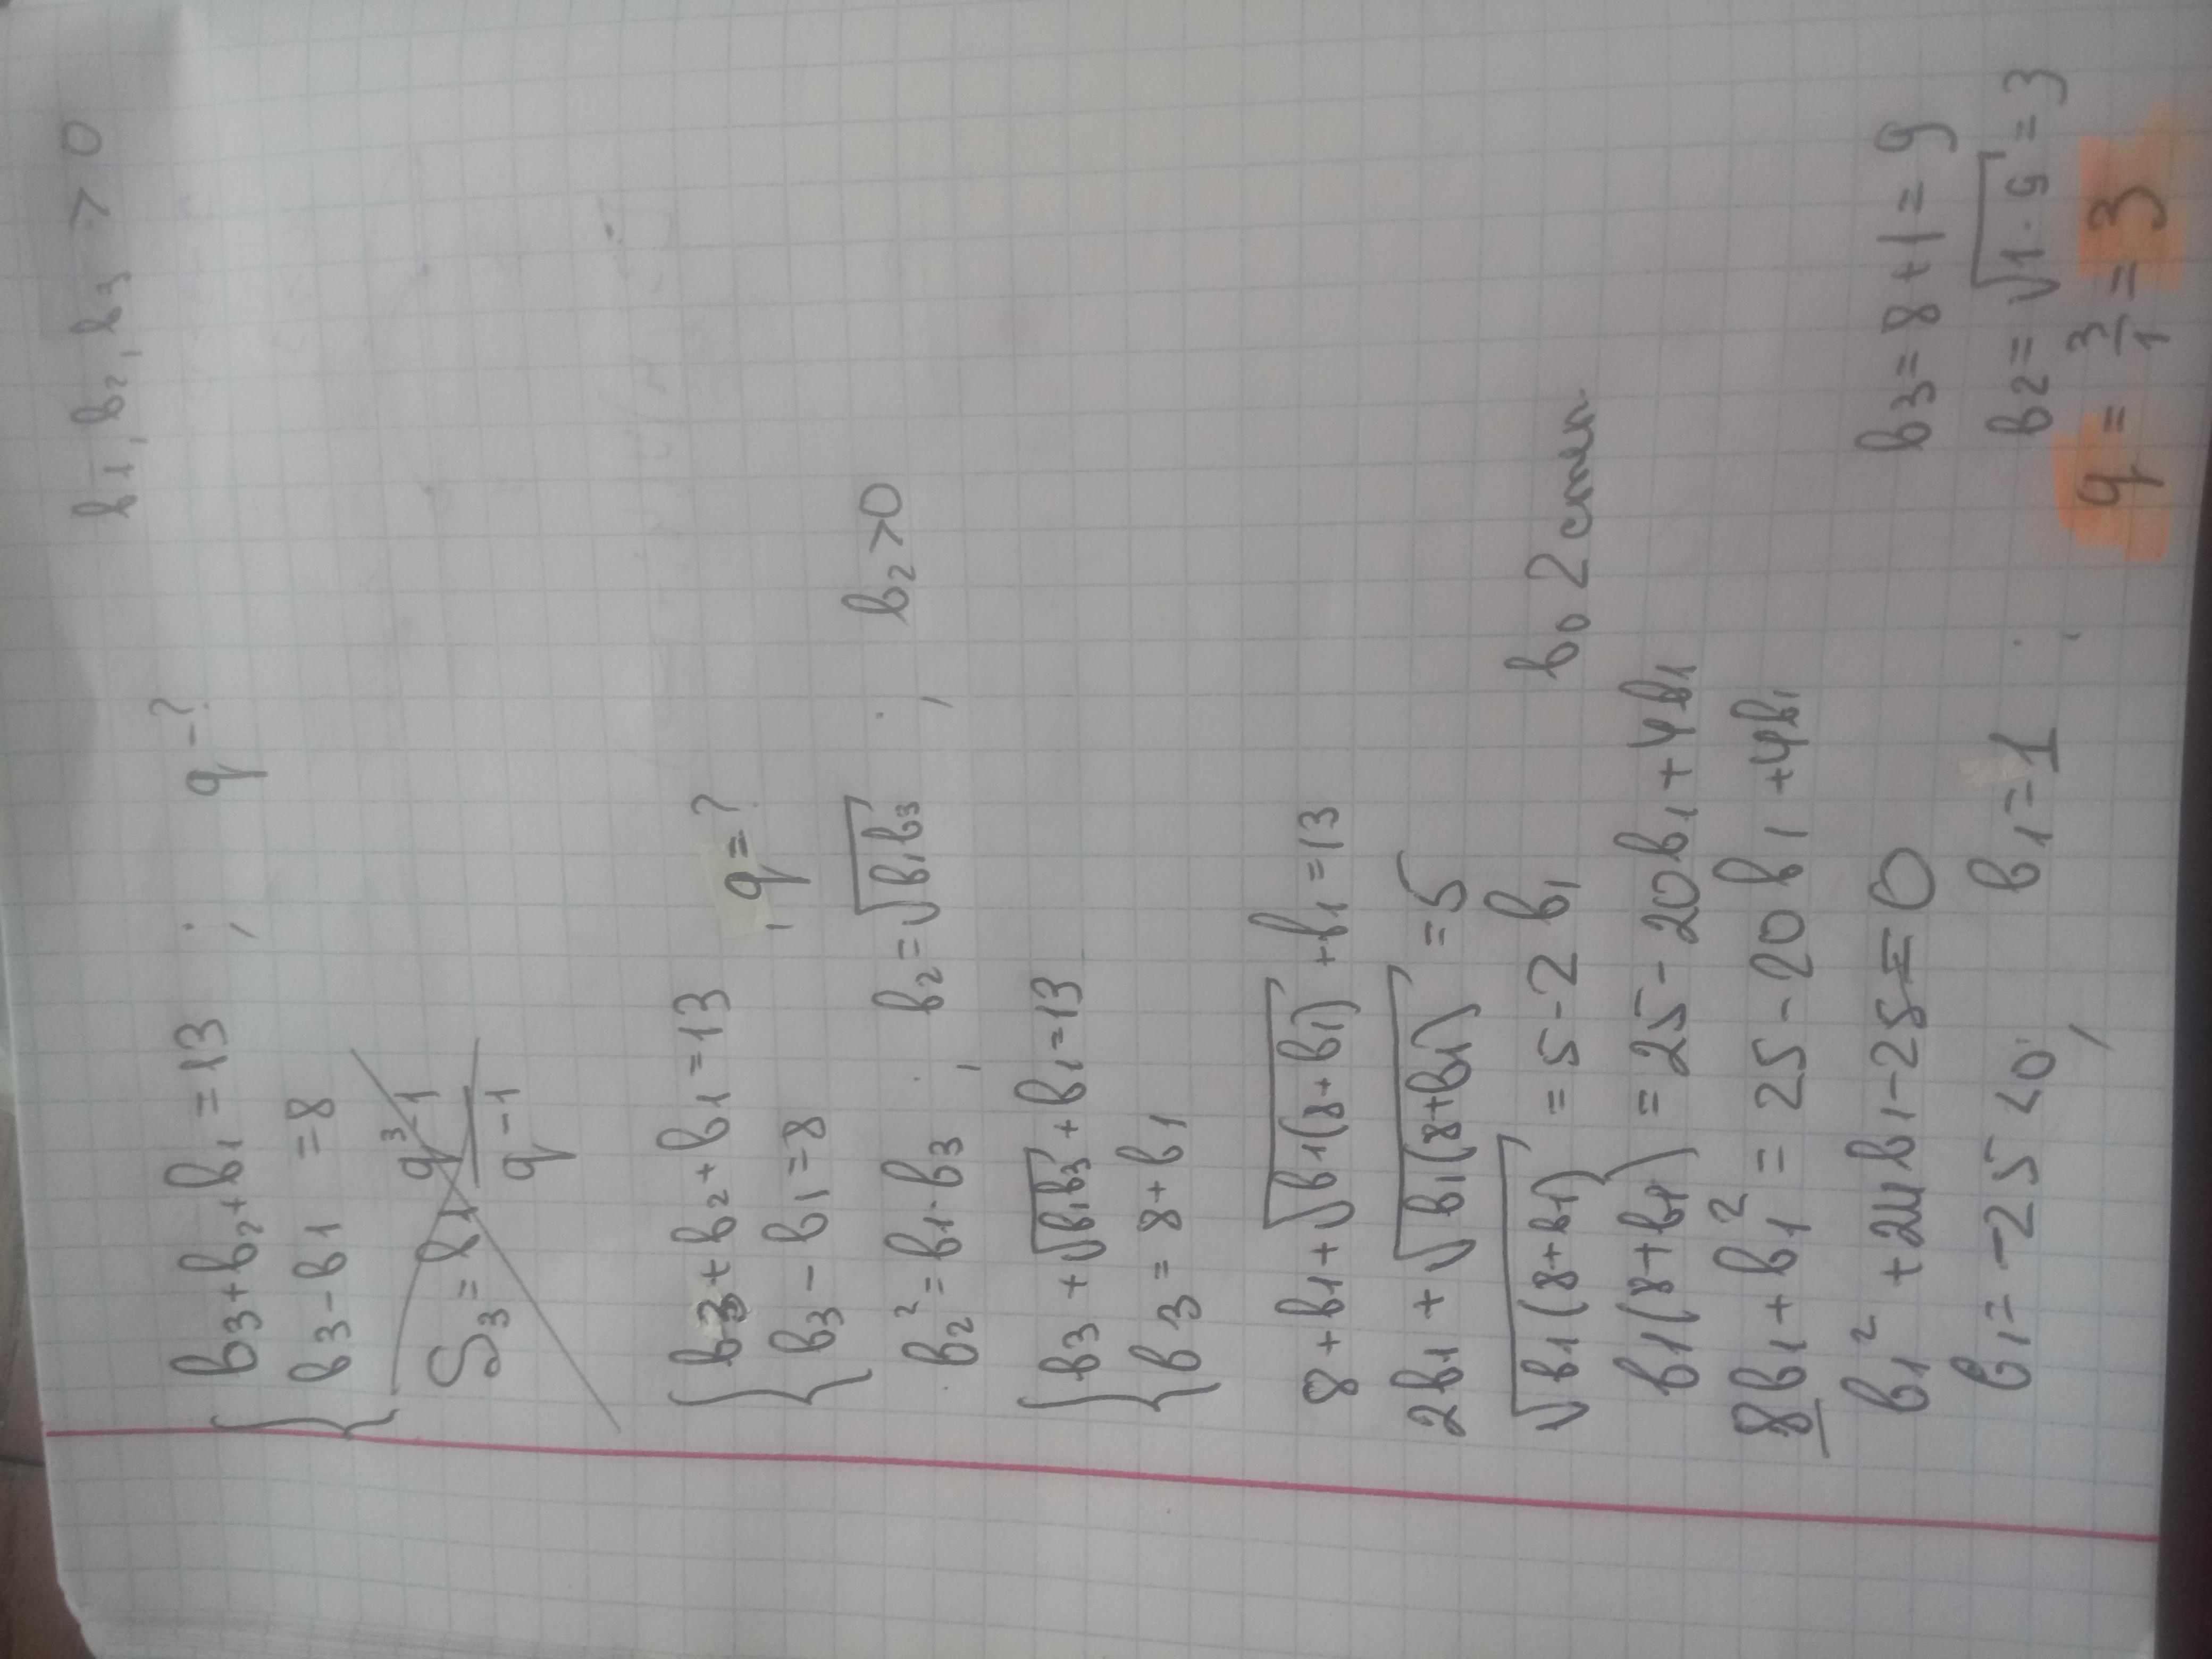 b₁, b₂, b₃ > 0
{ b₃+b₂+b₁=13 ; q-?
b₃-b₁=8
S₃=b₁ (q³-1)/(q-1)
{ b₃+b₂+b₁=13 , q=?
b₃-b₁=8
b₂²=b₁·b₃ ; b₂=√(b₁b₃) ; b₂>0
{ b₃+√(b₁b₃)+b₁=13
b₃=8+b₁
8+b₁+√(b₁(8+b₁))+b₁=13
2b₁+√(b₁(8+b₁))=5
√(b₁(8+b₁))=5-2b₁ во 2 степ
b₁(8+b₁)=25-20b₁+4b₁
8b₁+b₁²=25-20b₁+4b₁
b₁²+24b₁-25=0
b₁=-25<0; b₁=1 ;
b₃=8+1=9
b₂=√(1·9)=3
q=3/1=3